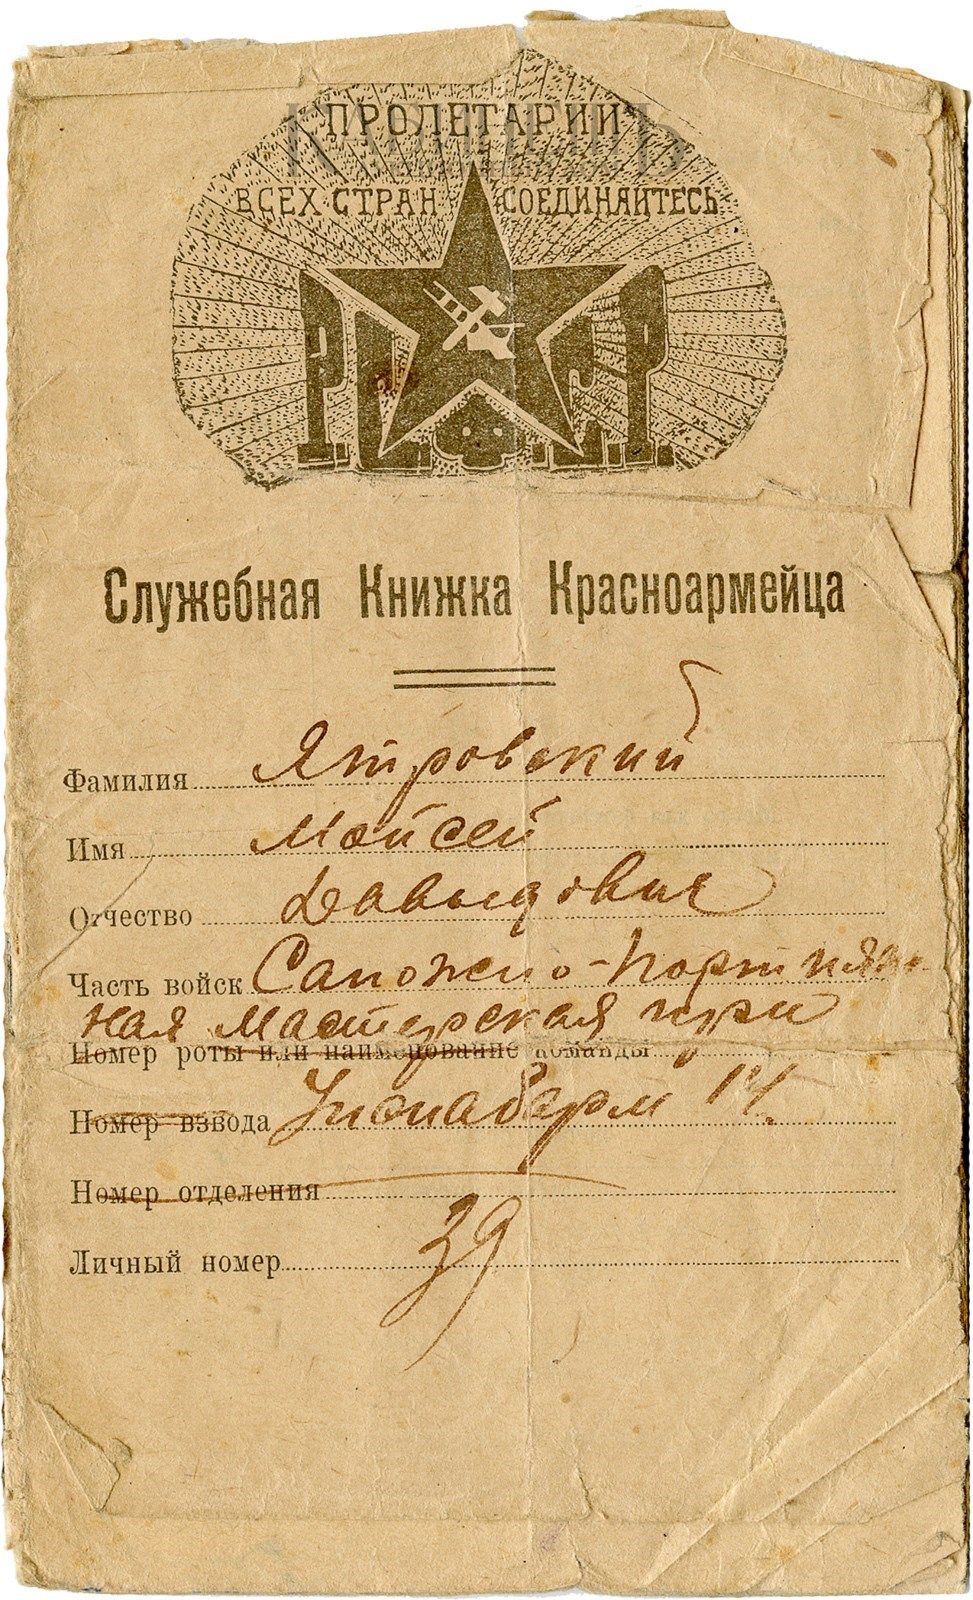 ПРОЛЕТАРИИ
ВСЕХ СТРАН СОЕДИНЯЙТЕСЬ
Р.С.Ф.С.Р.
Служебная Книжка Красноармейца
Фамилия Ятровский
Имя Мойсей
Отчество Давыдович
Часть войск Сапожно-Портняж-
ная Мастерская при
Номер роты или наименование команды
Номер взвода Упснабарм 14.
Номер отделения
Личный номер 39